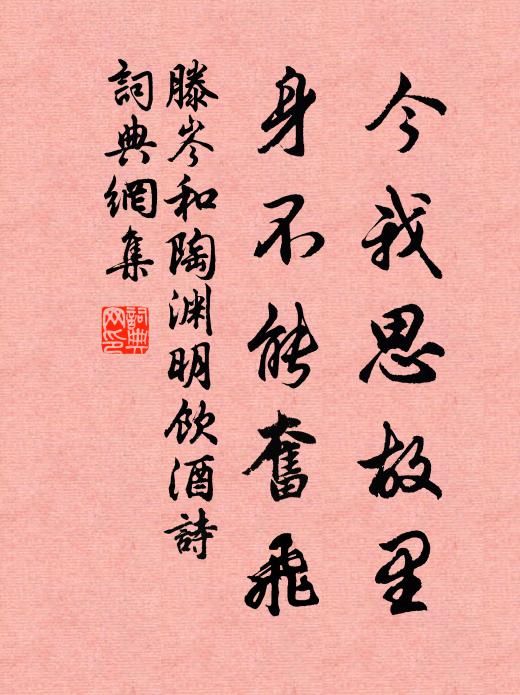 今我思故里
身不能奮飛
滕岑和陶渊明饮酒詩
詞典網集
詞典网印